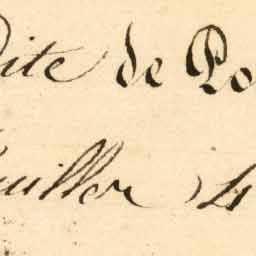 dite de Po
uiller 4